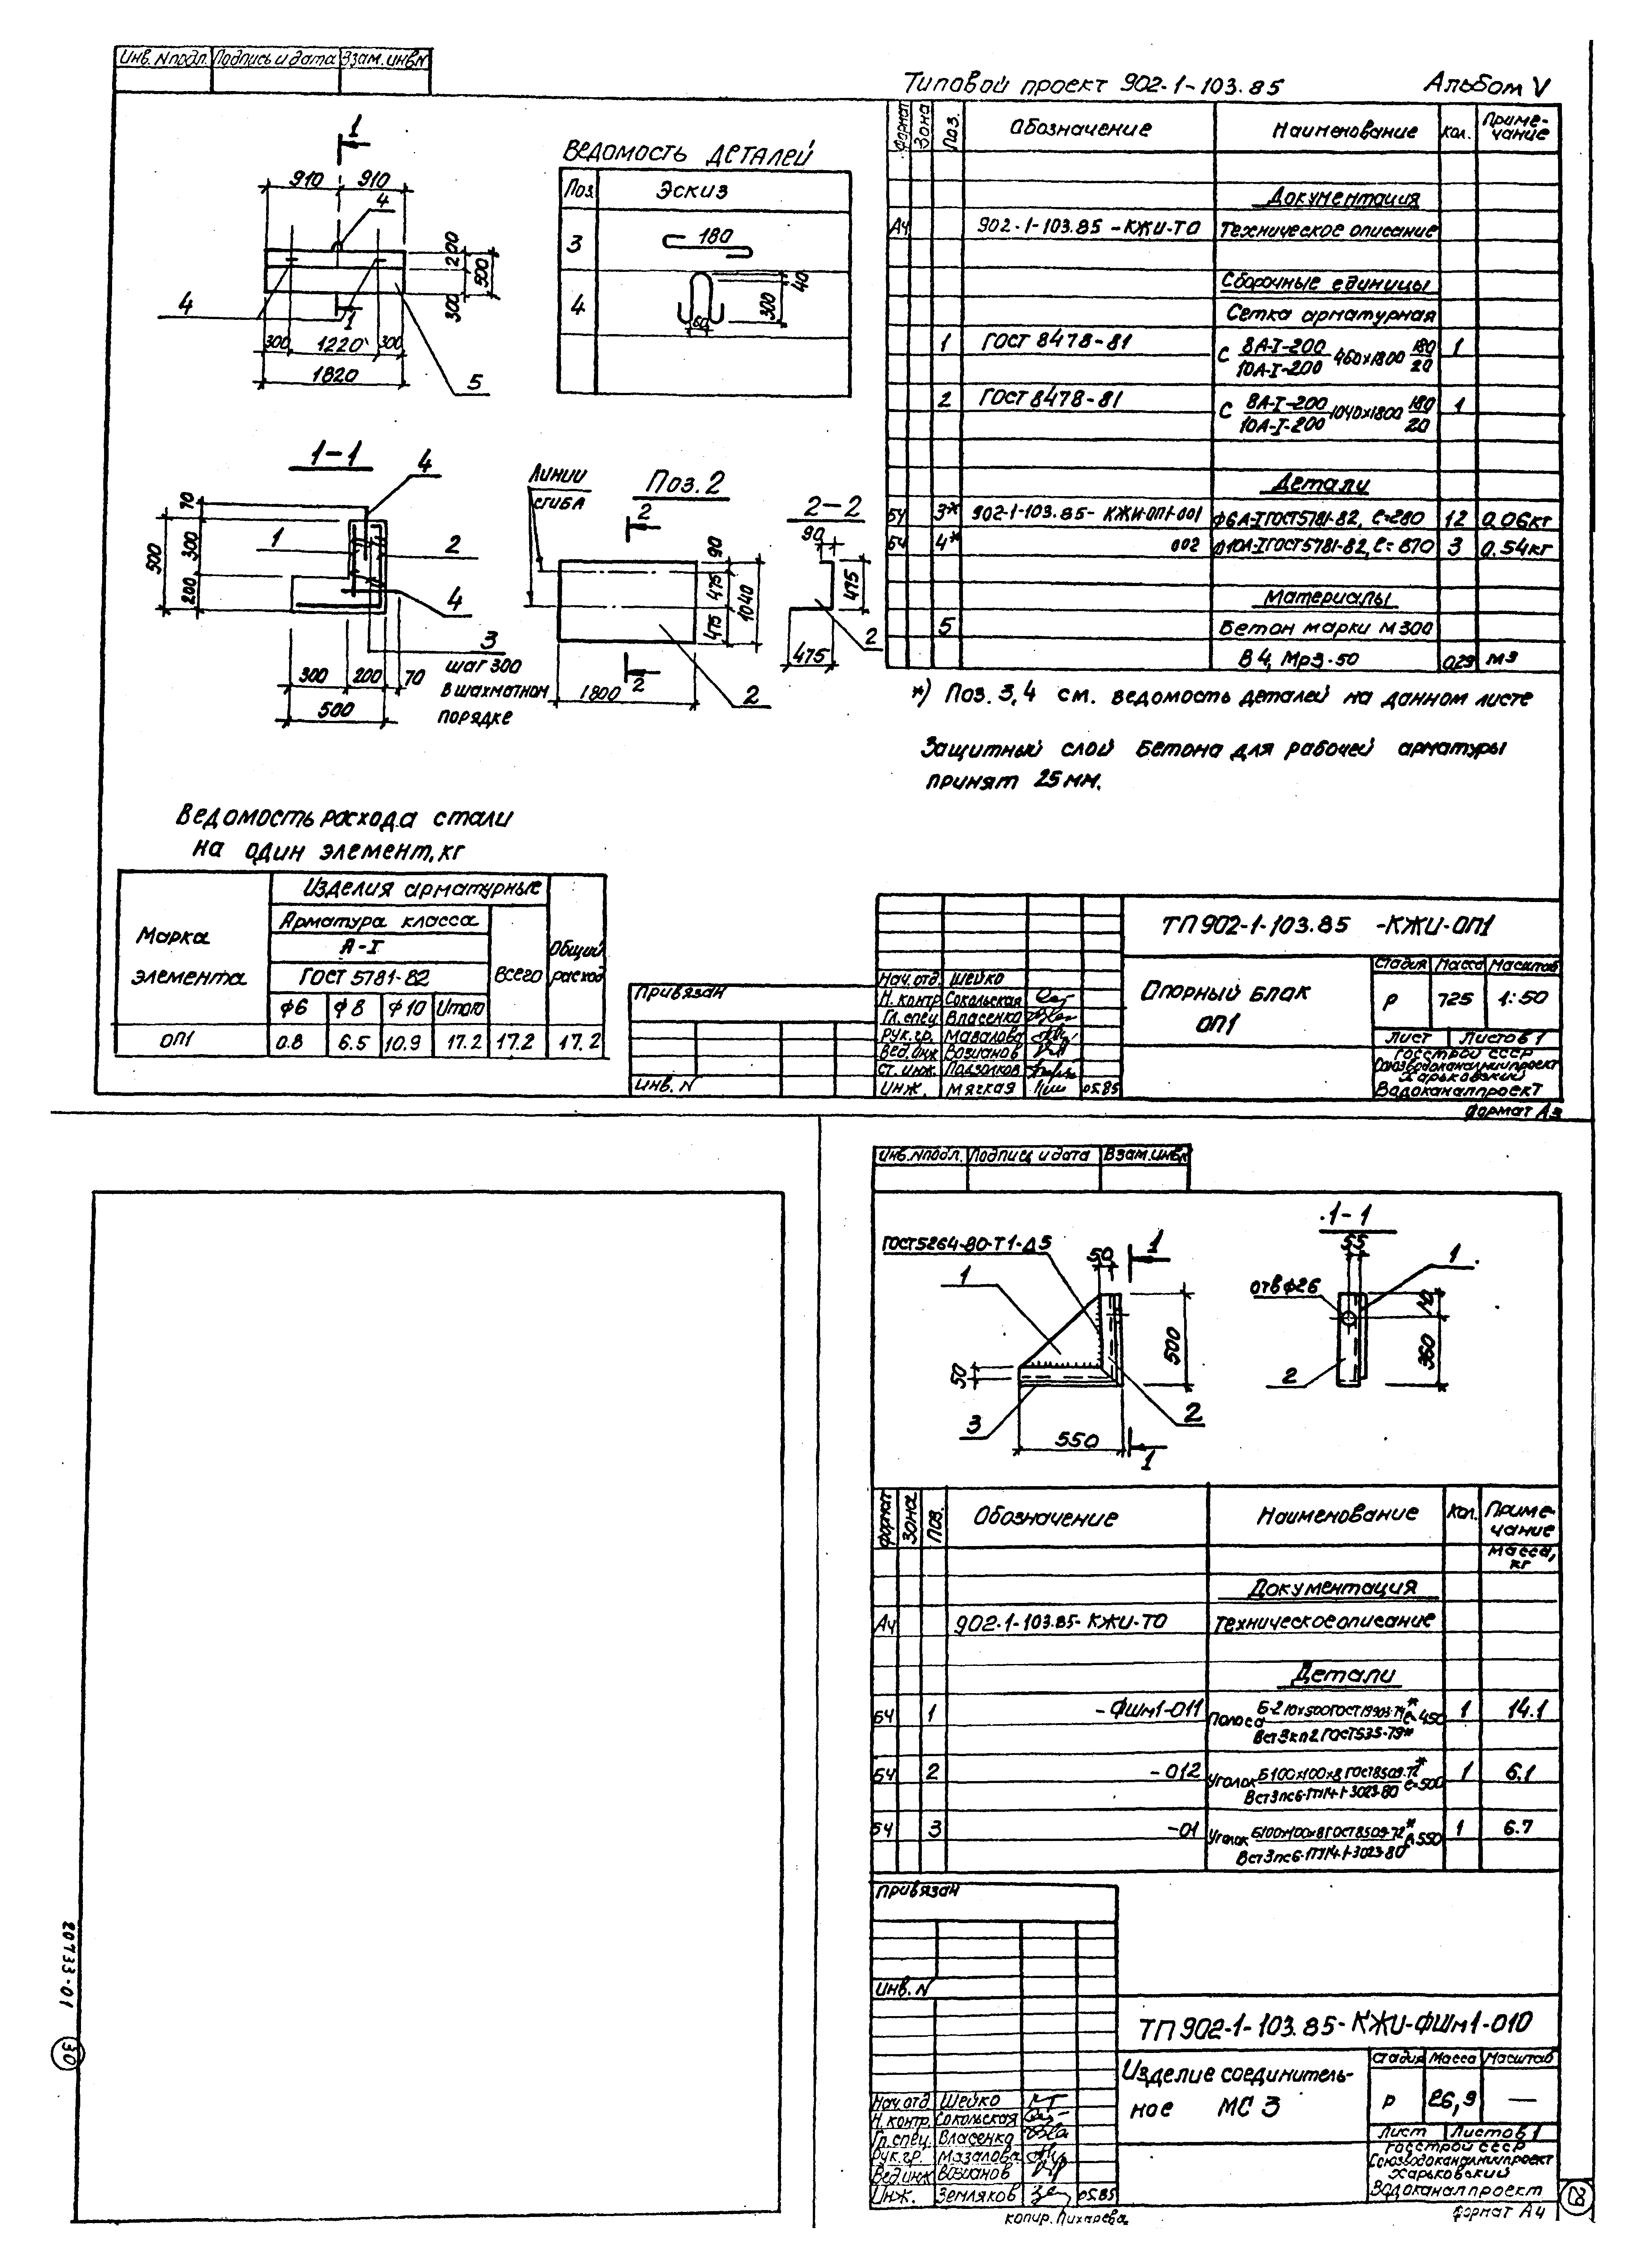 Инв. N подл. Подпись и дата Взам. инв N
Типовой проект 902-1-103.85 Альбом V
1
910 910
4
200
500
300
4
1
300 1220 300
1820
5
Ведомость деталей
Поз. Эскиз
3 180
4 60 300 40
Формат Зона Поз. Обозначение Наименование Кол. Примечание
Документация
А4 902-1-103.85-КЖИ-ТО Техническое описание
Сборочные единицы
Сетка арматурная
1 ГОСТ 8478-81 С 8А-I-200/10А-I-200 460х1800 180/20 1
2 ГОСТ 8478-81 С 8А-I-200/10А-I-200 1040х1800 180/20 1
Детали
БЧ 3* 902-1-103.85-КЖИ-ОП1-001 ф6А-I ГОСТ 5781-82, ℓ=280 12 0.06кг
БЧ 4* 002 ф10А-I ГОСТ 5781-82, ℓ=870 3 0.54кг
Материалы
5 Бетон марки М300
В4, Мрз-50 0.29 м3
1-1
4
70
500 300 200
1 2
4
3
шаг 300
в шахматном
порядке
300 200 70
500
Линии
сгиба
Поз. 2
2
90
475
475
1040
1800
2
2
2-2
90
475
475
2
*) Поз. 3,4 см. ведомость деталей на данном листе
Защитный слой бетона для рабочей арматуры
принят 25 мм.
Ведомость расхода стали
на один элемент, кг
Марка элемента Изделия арматурные Общий расход
Арматура класса Всего
А-I
ГОСТ 5781-82
ф6 ф8 ф10 Итого
ОП1 0.8 6.5 10.9 17.2 17.2 17.2
Привязан
Инв. N
Нач. отд. Шейко
Н. контр Сокольская
Гл. спец Власенко
Рук. гр. Мазалова
Вед. инж Возианов
Ст. инж. Подзолков
Инж. Мягкая 05.85
ТП 902-1-103.85 -КЖИ-ОП1
Опорный блок
ОП1
Стадия Масса Масштаб
Р 725 1:50
Лист Листов 1
Госстрой СССР
Союзводоканалниипроект
Харьковский
Водоканалпроект
Формат А3
Инв. N подл. Подпись и дата Взам. инв N
ГОСТ 5264-80-Т1-Δ5
1
50
1
500
50
3
2
550
1
1-1
55
1
отв ф26
140
360
2
Формат Зона Поз. Обозначение Наименование Кол. Примечание
масса, кг
Документация
А4 902-1-103.85-КЖИ-ТО Техническое описание
Детали
БЧ 1 -ФШм1-011 Полоса Б-2 10х500 ГОСТ 19903-74*/ВСт3кп2 ГОСТ 535-79* ℓ=450 1 14.1
БЧ 2 -012 Уголок Б100х100х8 ГОСТ 8509-72*/ВСт3пс6-ТУ14-1-3023-80 ℓ=500 1 6.1
БЧ 3 -01 Уголок Б100х100х8 ГОСТ 8509-72*/ВСт3пс6-ТУ14-1-3023-80 ℓ=550 1 6.7
Привязан
Инв. N
ТП 902-1-103.85-КЖИ-ФШм1-010
Изделие соединитель-
ное МС 3
Стадия Масса Масштаб
Р 26,9 —
Лист Листов 1
Госстрой СССР
Союзводоканалниипроект
Харьковский
Водоканалпроект
Нач. отд Шейко
Н. контр. Сокольская
Гл. спец. Власенко
Рук. гр. Мазалова
Вед. инж Возианов
Инж. Земляков 05.85
копир. Лихарева
формат А4
29
20733-01
30